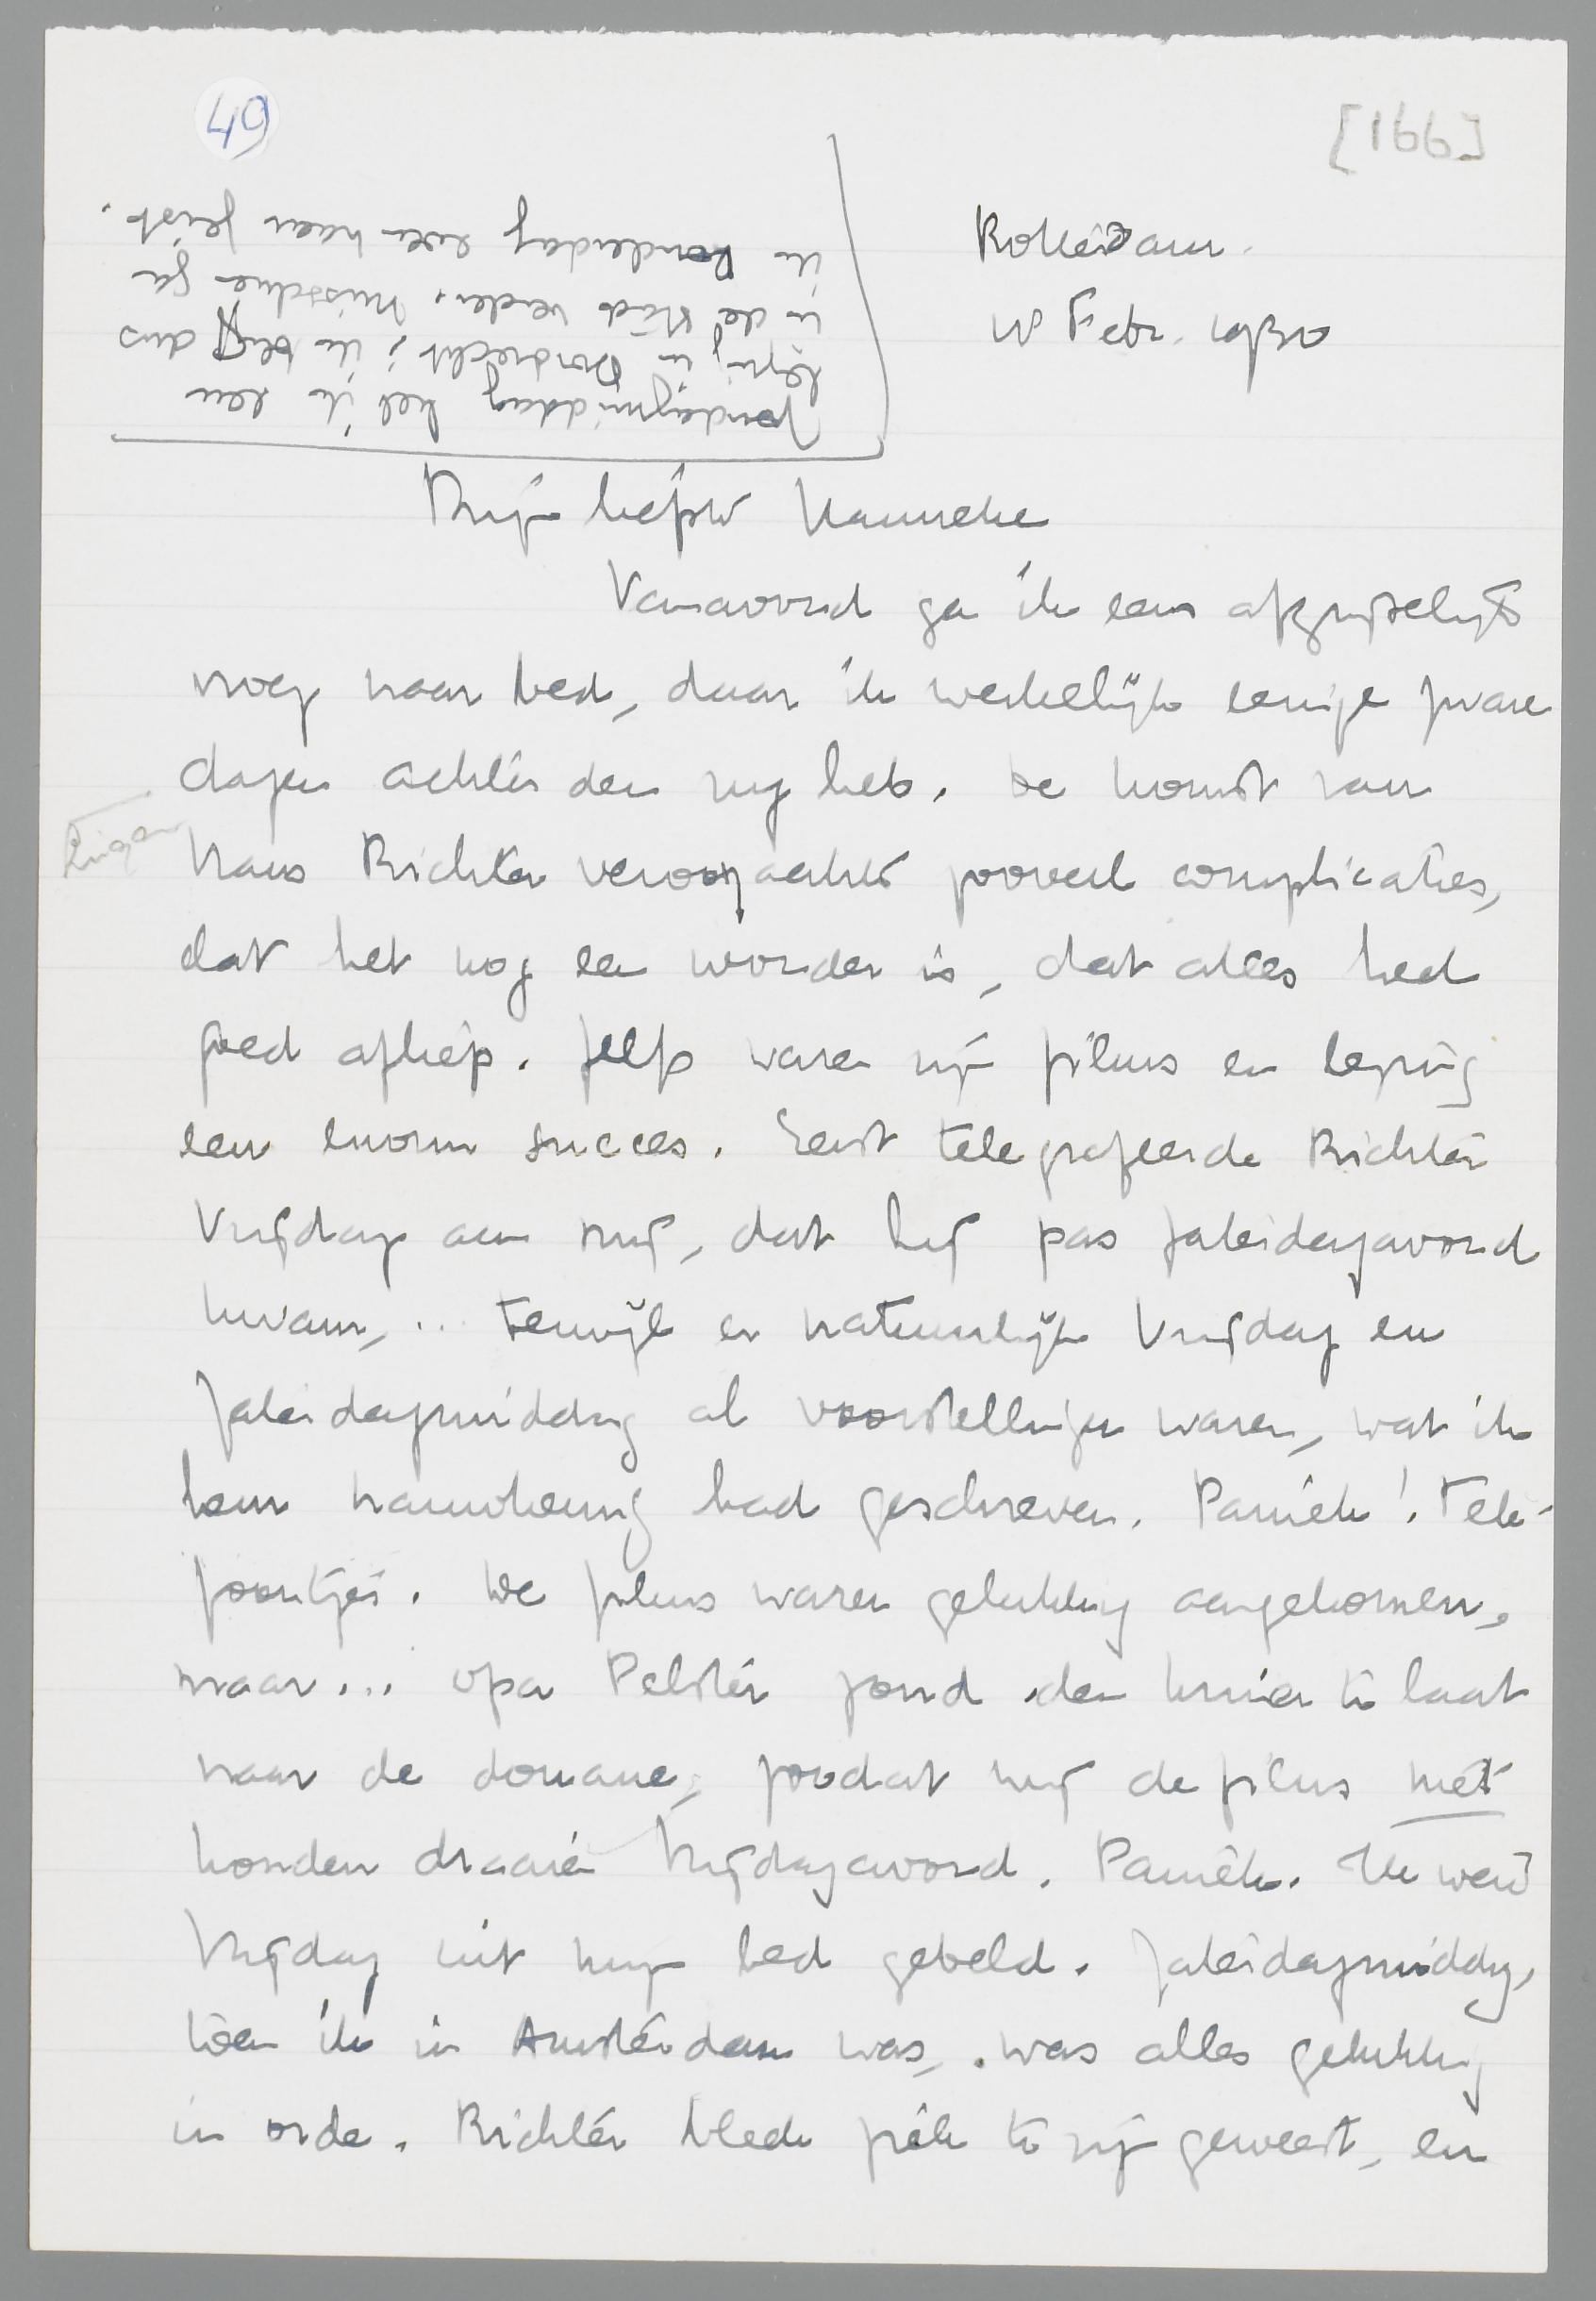 49
[166]
Rotterdam.
10 Febr. 1930
Zondagmiddag heb ik een
lezing in Dordrecht; ik blijf dus
in de stad verder. Misschien ga
ik Donderdag even naar Zeist.
Mijn liefste Hanneke
Vanavond ga ik eens afgrijselijk
vroeg naar bed, daar ik werkelijk eenige zware
dagen achter den rug heb. De komst van
Hans Richter veroorzaakte zooveel complicaties,
dat het nog een wonder is, dat alles heel
goed afliep. Zelfs waren zijn films en lezing
een enorm succes. Eerst telegrafeerde Richter
Vrijdag aan mij, dat hij pas Zaterdagavond
kwam, ... terwijl er natuurlijk Vrijdag en
Zaterdagmiddag al voorstellingen waren, wat ik
hem nauwkeurig had geschreven. Paniek! Tele-
foontjes. De films waren gelukkig aangekomen,
maar... opa Pelster zond den kruier te laat
naar de douane, zoodat wij de films niet
konden draaien Vrijdagavond. Paniek. Ik werd
Vrijdag uit mijn bed gebeld. Zaterdagmiddag,
toen ik in Amsterdam was, was alles gelukkig
in orde. Richter bleek ziek te zijn geweest, en